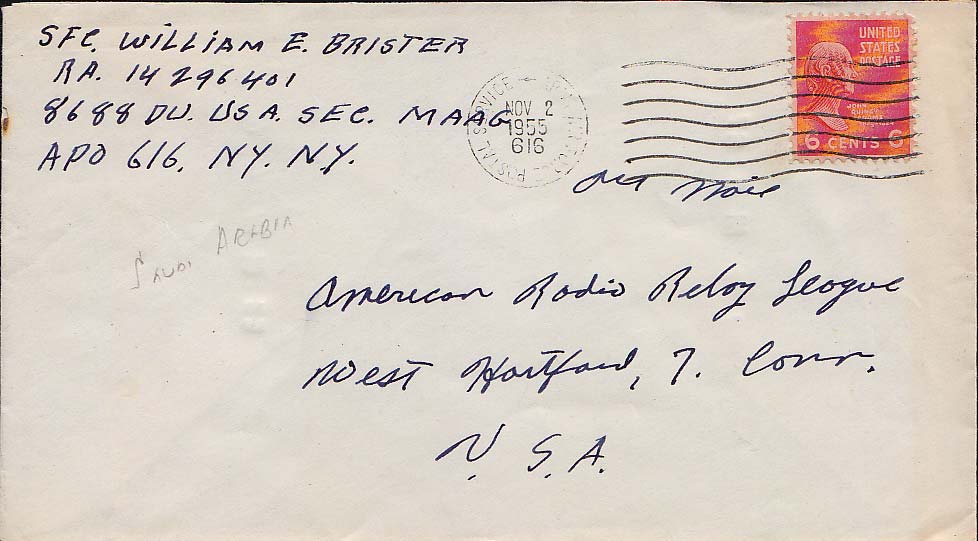 SFC. WILLIAM E. BRISTER
RA. 14296401
8688 DU. USA. SEC. MAAG
APO 616. NY. NY.
POSTAL SERVICE
NOV 2
1955
616
UNITED
STATES
POSTAGE
JOHN
QUINCY
6 CENTS 6
Air Mail
SAUDI ARABIA
American Radio Relay League
West Hartford, 7. Conn.
U. S. A.